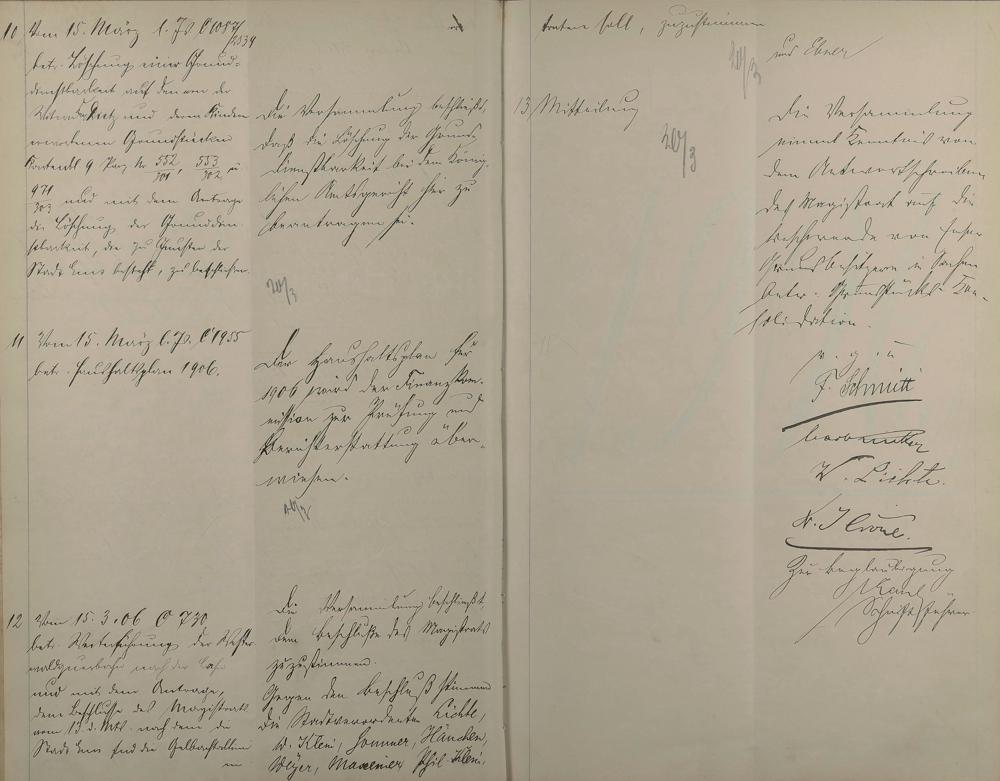 10 Vom 15. März l. Js. C 1057/2534
betr. Löschung einer Grund-
dienstbarkeit auf den von der
und deren Kinder
erworbenen Grundstücken
Kartenbl 9 Parz Nr. 552/301, 553/302 u
971/303 und mit dem Antrage
die Löschung der Grunddien-
stbarkeit, die zu Gunsten der
Stadt Ems besteht, zu beschließen.
Die Versammlung beschließt,
daß die Löschung der Grund-
dienstbarkeit bei dem König-
lichen Amtsgericht hier zu
beantragen sei.
20/3
11 Vom 15. März l. Js. C 1955
betr. Haushaltsplan 1906.
Der Haushaltsplan für
1906 wird der Finanzkom-
mission zur Prüfung und
Berichterstattung über-
wiesen.
20/3
12 Vom 15.3.06 C 730
betr. Weiterführung der Wester-
waldquerbahn nach der
und mit dem Antrage,
dem Beschlusse des Magistrats
vom 13 d. Mts. nach dem die
Stadt Ems sich die
Die Versammlung beschließt,
dem Beschlusse des Magistrats
zuzustimmen.
Gegen den Beschluß stimmen
die Stadtverordneten Lichte,
W. Klein, Sommer, Hänchen,
Weyer, Phil. Klein,
treten soll, zuzustimmen
und Ebner
20/3
13 Mitteilung
20/3
Die Versammlung
nimmt Kenntnis von
dem Antwortschreiben
des Magistrat auf die
Beschwerde von Emser
Grundbesitzern in Sachen
betr. Grundstücks-Kon-
solidation.
v. g. u
F. Schmitt
W. Lichte.
Zur Beglaubigung
Schriftführer